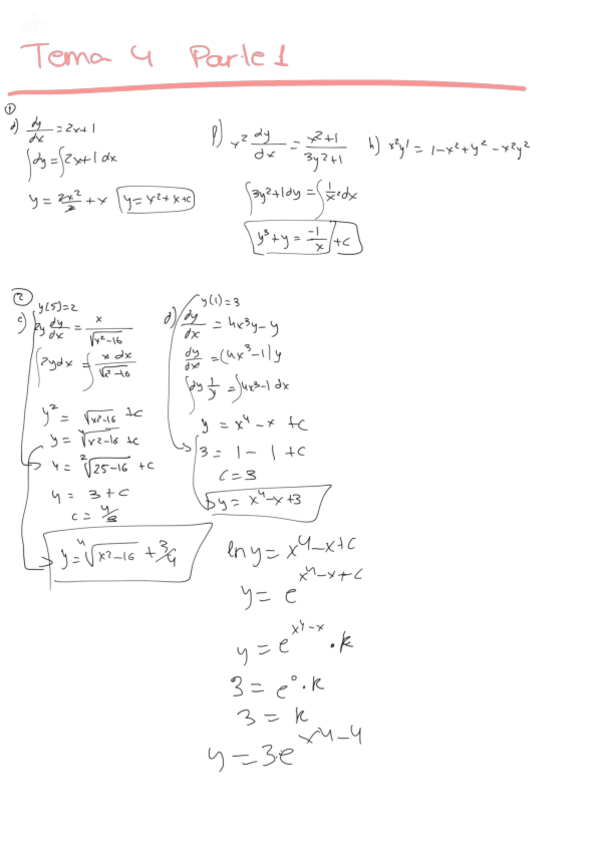 Tema 4 Parte 1
①
d) dy/dx = 2x+1
∫dy = ∫2x+1 dx
y = 2x²/2 + x y = x²+x+c
f) x² dy/dx = x²+1/3y²+1
∫3y²+1dy = ∫1/x² dx
y³+y = -1/x + c
h) x²y' = 1-x²+y²-x²y²
②
y(5)=2
c) 2y dy/dx = x/√x²-16
∫2ydx = ∫x dx/√x²-16
y² = √x²-16 +c
y = ⁴√x²-16 +c
4 = ²√25-16 +c
4 = 3+c
y = ⁴√x²-16 + 3/4
y(1)=3
d) dy/dx = 4x³y-y
dy/dx = (4x³-1)y
∫dy 1/y = ∫4x³-1 dx
y = x⁴-x +c
3 = 1-1+c
c=3
y = x⁴-x+3
ln y = x⁴-x+c
y = e^x⁴-x+c
y = e^x⁴-x · k
3 = e⁰·k
3 = k
y = 3·e^x⁴-4